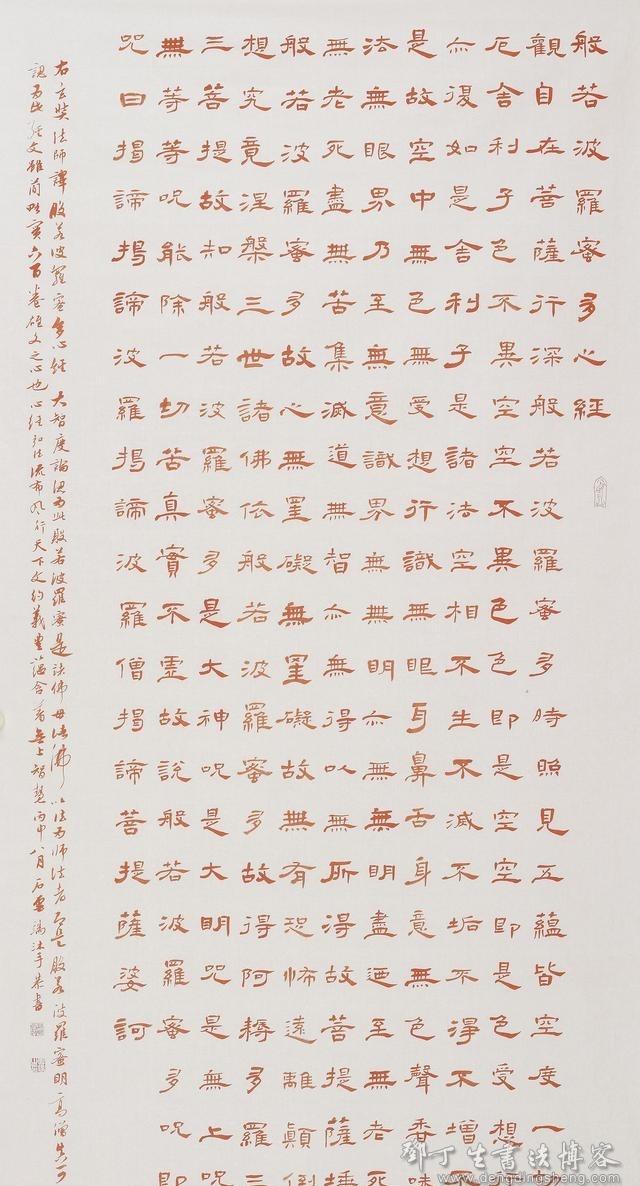 般若波羅蜜多心經
觀自在菩薩行深般若波羅蜜多時照見五蘊皆空度一
厄舍利子色不異空空不異色色即是空空即是色受想
亦復如是舍利子是諸法空相不生不滅不垢不淨不增不
是故空中無色無受想行識無眼耳鼻舌身意無色聲香味
法無眼界乃至無意識界無無明亦無無明盡迺至無老死
無老死盡無苦集滅道無智亦無得以無所得故菩提薩埵
般若波羅蜜多故心無罣礙無罣礙故無有恐怖遠離顛倒
想究竟涅槃三世諸佛依般若波羅蜜多故得阿耨多羅三
三菩提故知般若波羅蜜多是大神咒是大明咒是無上咒
無等等呪能除一切苦真實不虛故說般若波羅蜜多呪即
咒曰揭諦揭諦波羅揭諦波羅僧揭諦菩提薩婆訶
右玄奘法師譯般若波羅蜜多心經大智度論認為此般若波羅蜜是諸佛母諸佛以法為師法者即是般若波羅蜜明高僧真可
認為此經文雖簡略實六百卷雄文之心也心經弘法流布風行天下文約義豐蘊含着無上智慧丙申八月石雲沐手恭書
鄧丁生書法博客
www.dengdingsheng.com